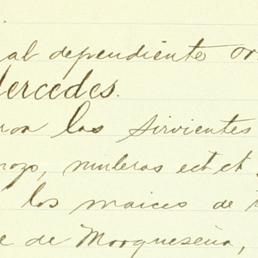 al dependiente
Mercedes.
las sirvientes
muleras ect et
los maices de
de Morqueseña,